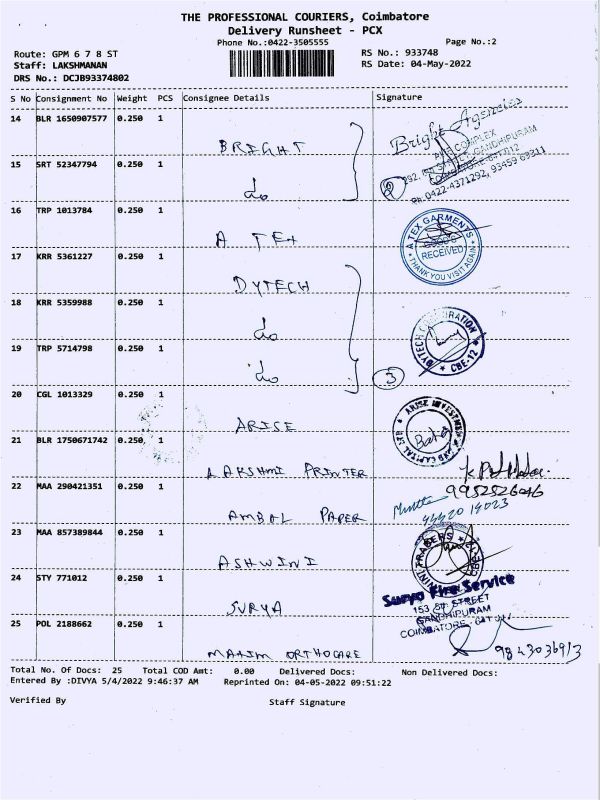 THE PROFESSIONAL COURIERS, Coimbatore
Delivery Runsheet - PCX
Phone No.:0422-3505555
Page No.:2
Route: GPM 6 7 8 ST
RS No.: 933748
Staff: LAKSHMANAN
RS Date: 04-May-2022
DRS No.: DCJB93374802
S No Consignment No Weight PCS Consignee Details Signature
14 BLR 1650907577 0.250 1
BRIGHT
Bright Agencies
COMPLEX
GANDHIPURAM
Ph: 0422-4371292, 93459 69311
15 SRT 52347794 0.250 1
do
2
16 TRP 1013784 0.250 1
A TEX
A TEX GARMENTS
GOODS
RECEIVED
THANK YOU VISIT AGAIN
17 KRR 5361227 0.250 1
DYTECH
18 KRR 5359988 0.250 1
do
DYTECH
CBE-12
19 TRP 5714798 0.250 1
do
3
20 CGL 1013329 0.250 1
ARISE
ARISE INVESTMENT AND CAPITAL
21 BLR 1750671742 0.250 1
LAKSHMI PRINTER
9952526046
22 MAA 290421351 0.250 1
AMBAL PAPER
23 MAA 857389844 0.250 1
ASHWINI
TRADERS
24 STY 771012 0.250 1
SURYA
Surya Fire Service
153 8th STREET
GANDHIPURAM
COIMBATORE
25 POL 2188662 0.250 1
MAXIM ORTHOCARE
9843036913
Total No. Of Docs: 25 Total COD Amt: 0.00 Delivered Docs: Non Delivered Docs:
Entered By :DIVYA 5/4/2022 9:46:37 AM Reprinted On: 04-05-2022 09:51:22
Verified By Staff Signature